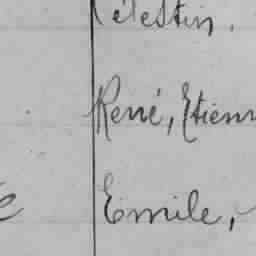 Célestin.
René, Etienn
Emile,